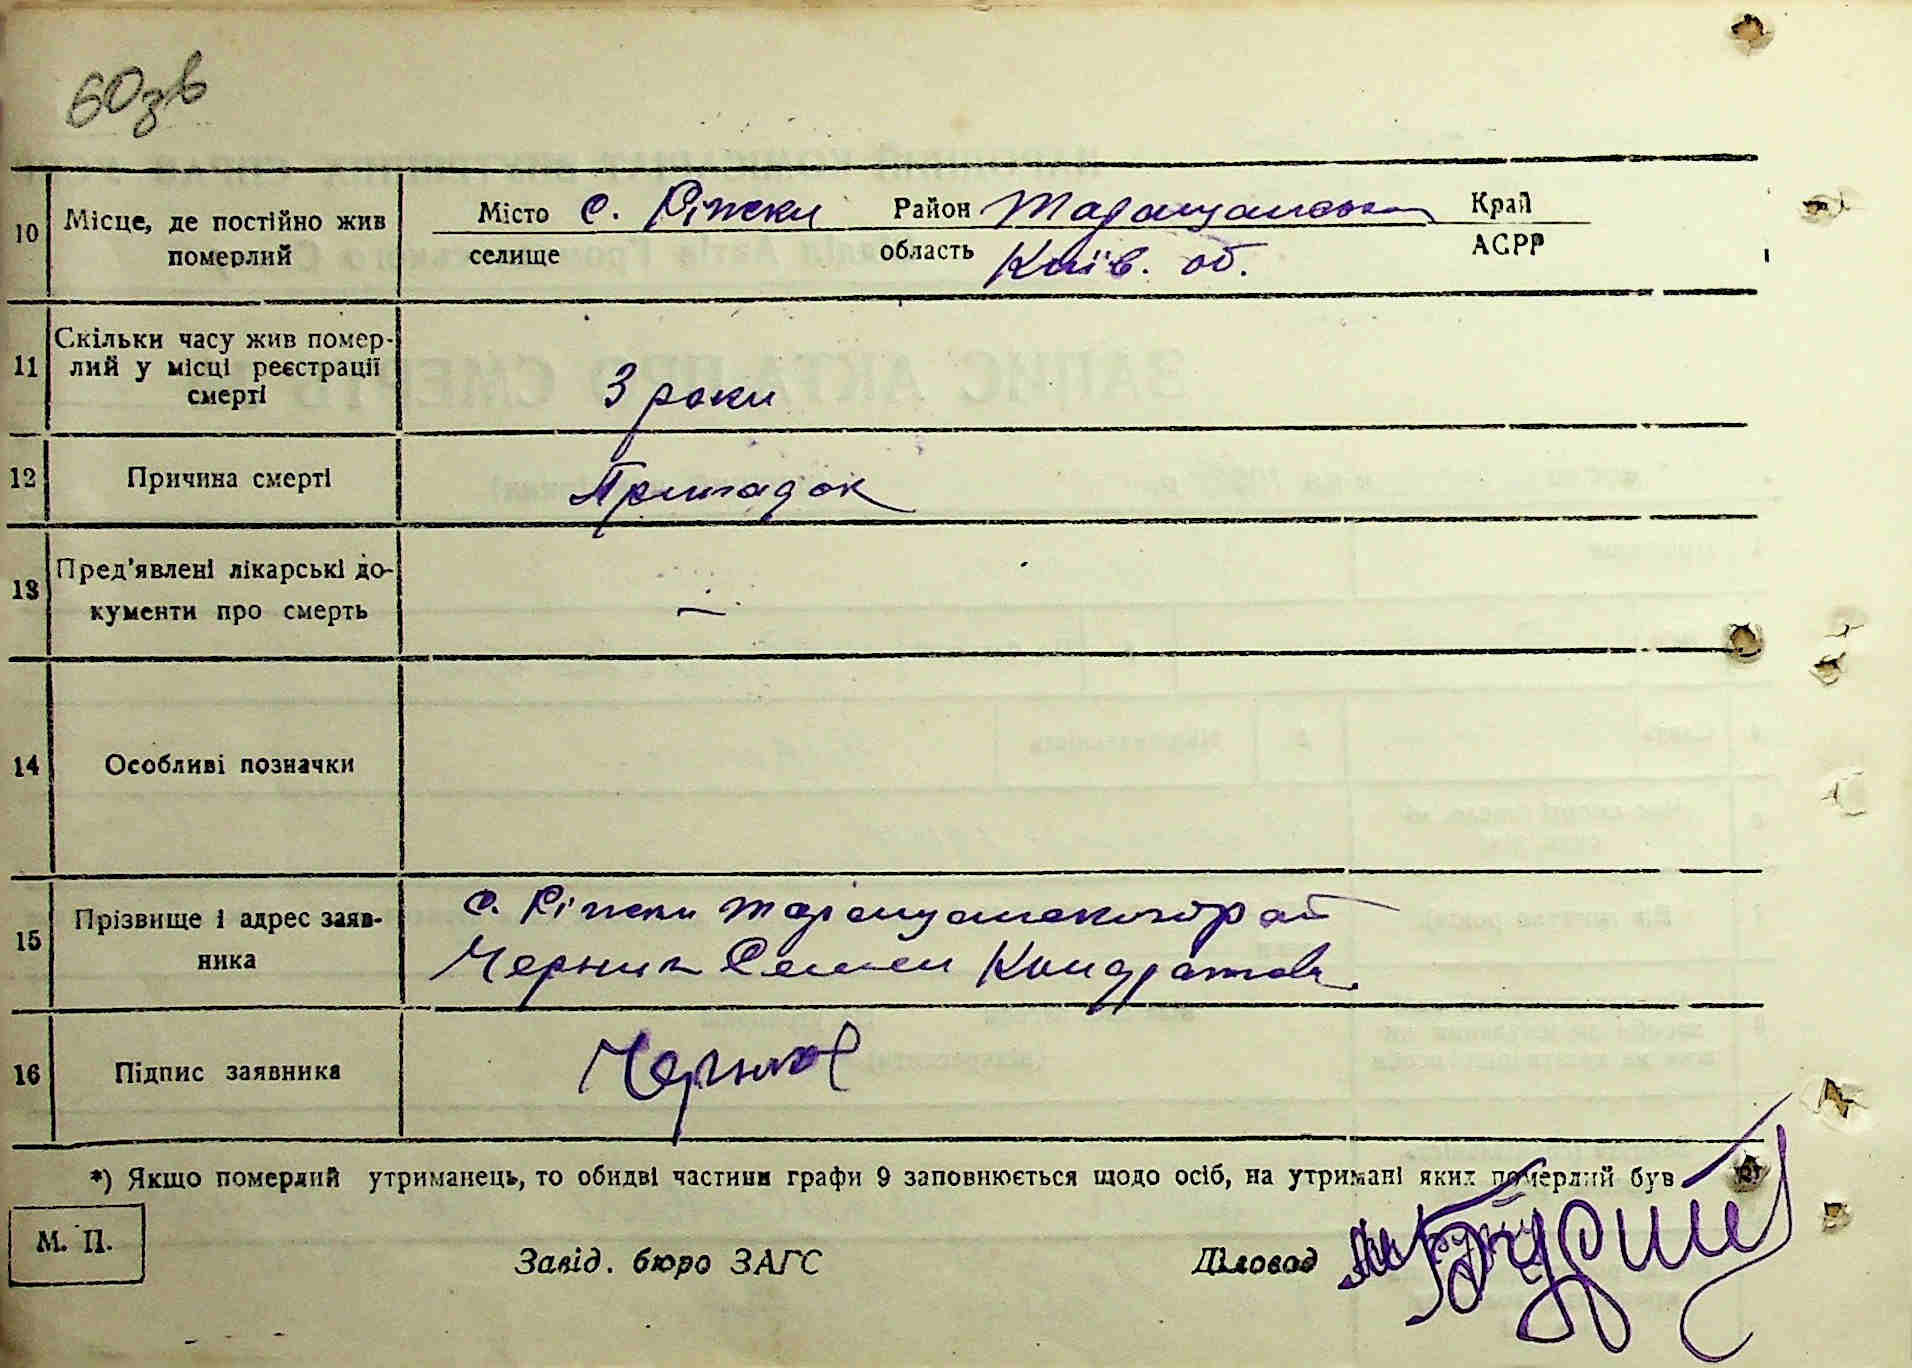 60зв
10 Місце, де постійно жив померлий
Місто с. Ріжки Район Таращанськ Край
селище область Київ. об. АСРР
11 Скільки часу жив помер-
лий у місці реєстрації
смерті
3 роки
12 Причина смерті Припадок
13 Пред'явлені лікарські до-
кументи про смерть
—
14 Особливі позначки
15 Прізвище і адрес заяв-
ника
с. Ріжки Таращанського рай
Черник Семен Кондратов
16 Підпис заявника Черник
*) Якщо померлий утриманець, то обидві частини графи 9 заповнюється щодо осіб, на утримані яких померлий був
М. П.
Завід. бюро ЗАГС Діловод